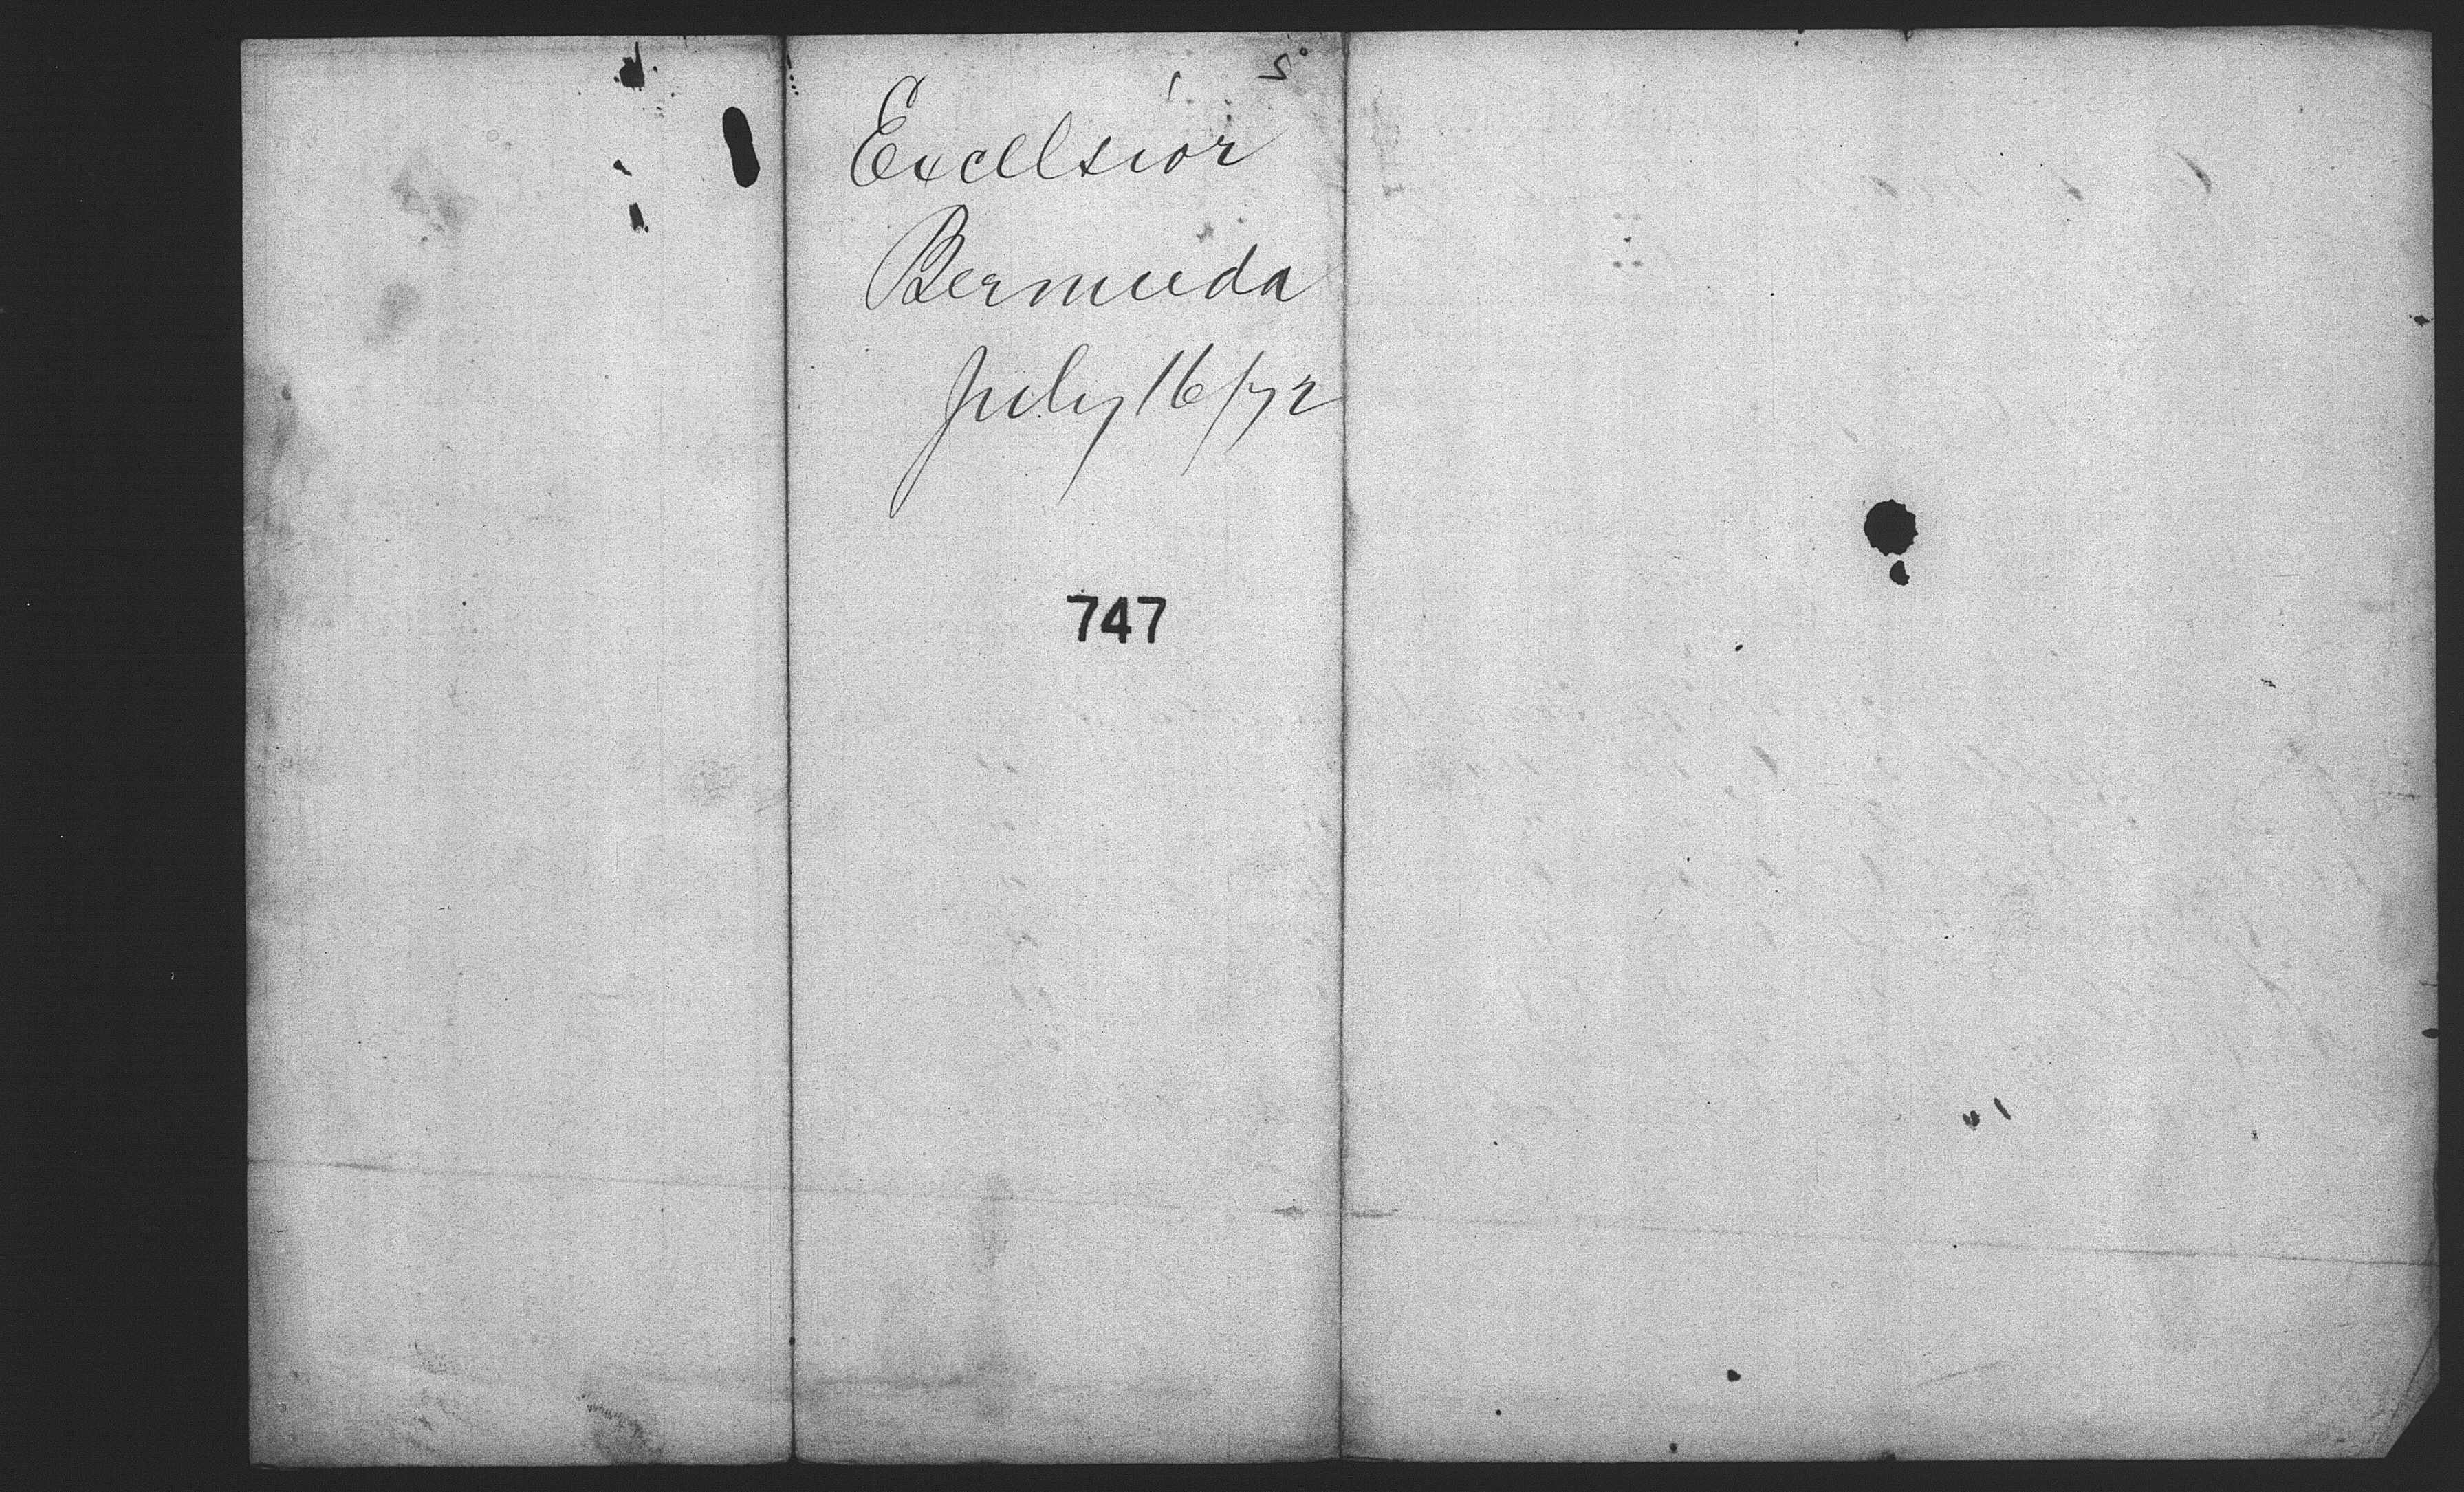 Excelsior
Bermuda
July 16/72
747